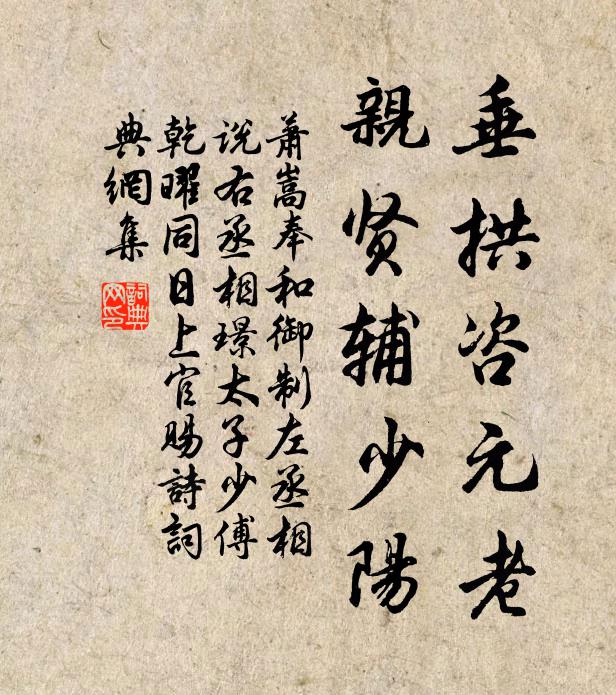 垂拱咨元老
親贤辅少陽
萧嵩奉和御制左丞相
说右丞相璟太子少傅
乾曜同日上官赐詩詞
典網集
詞典
网印